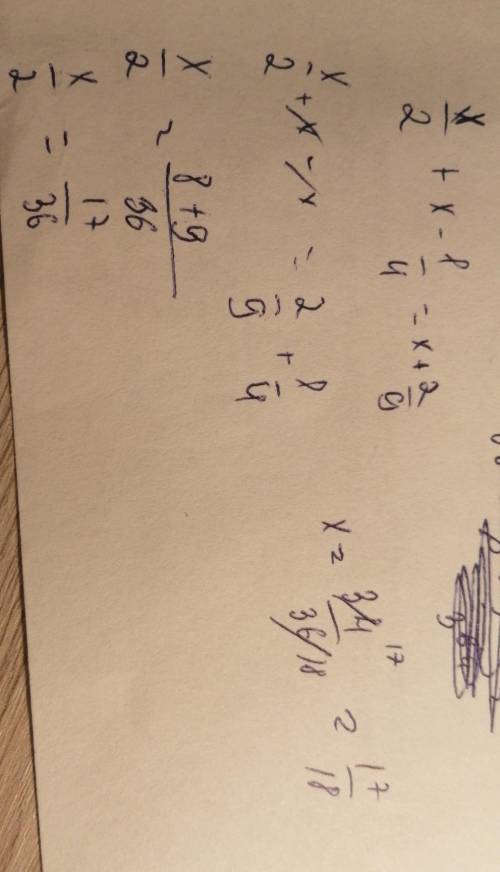 x/2 + x - 1/4 = x + 2/9
x/2 + x - x = 2/9 + 1/4
x/2 = 8+9/36
x/2 = 17/36
x = 34/36 17/18 = 17/18